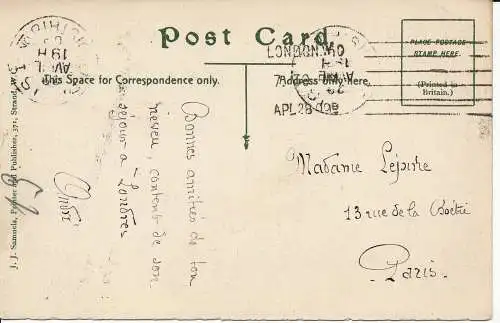 Post Card
This Space for Correspondence only.
Address only here.
PLACE POSTAGE
STAMP HERE.
(Printed in
Britain.)
LONDON. W.O
7
APL 28 09
J. J. Samuels, Printer and Publisher, 371, Strand, W.C.
Bonnes amitiés de ton
neveu, content de son
séjour à Londres
André
Madame Lepivre
13 rue de la Boëtie
Paris.